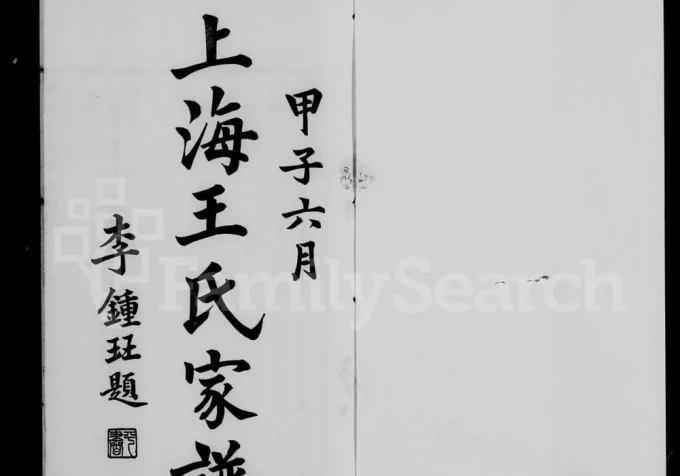 甲子六月
上海王氏家譜
李鍾珏題
FamilySearch